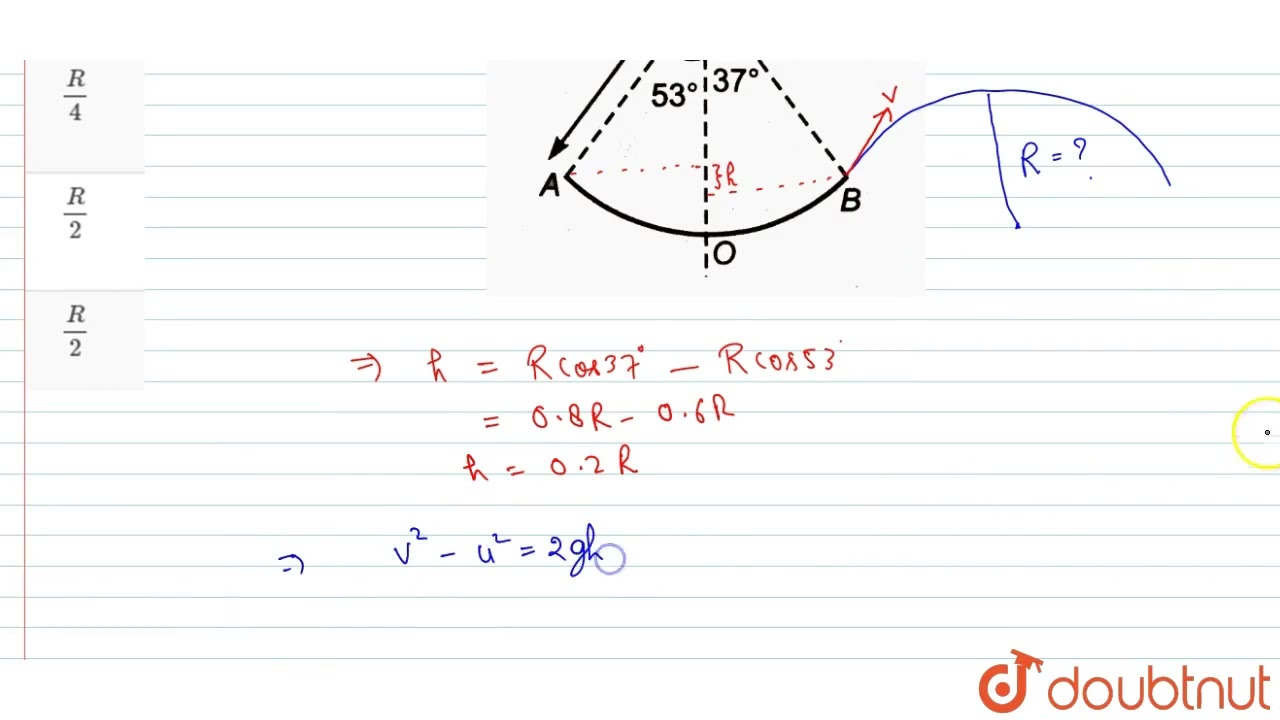 R/4
R/2
R/2
53° 37°
V
A
}h
B
O
R = ?
⇒ h = Rcos37° - Rcos53°
= 0.8R - 0.6R
h = 0.2R
⇒ v² - u² = 2gh
doubtnut